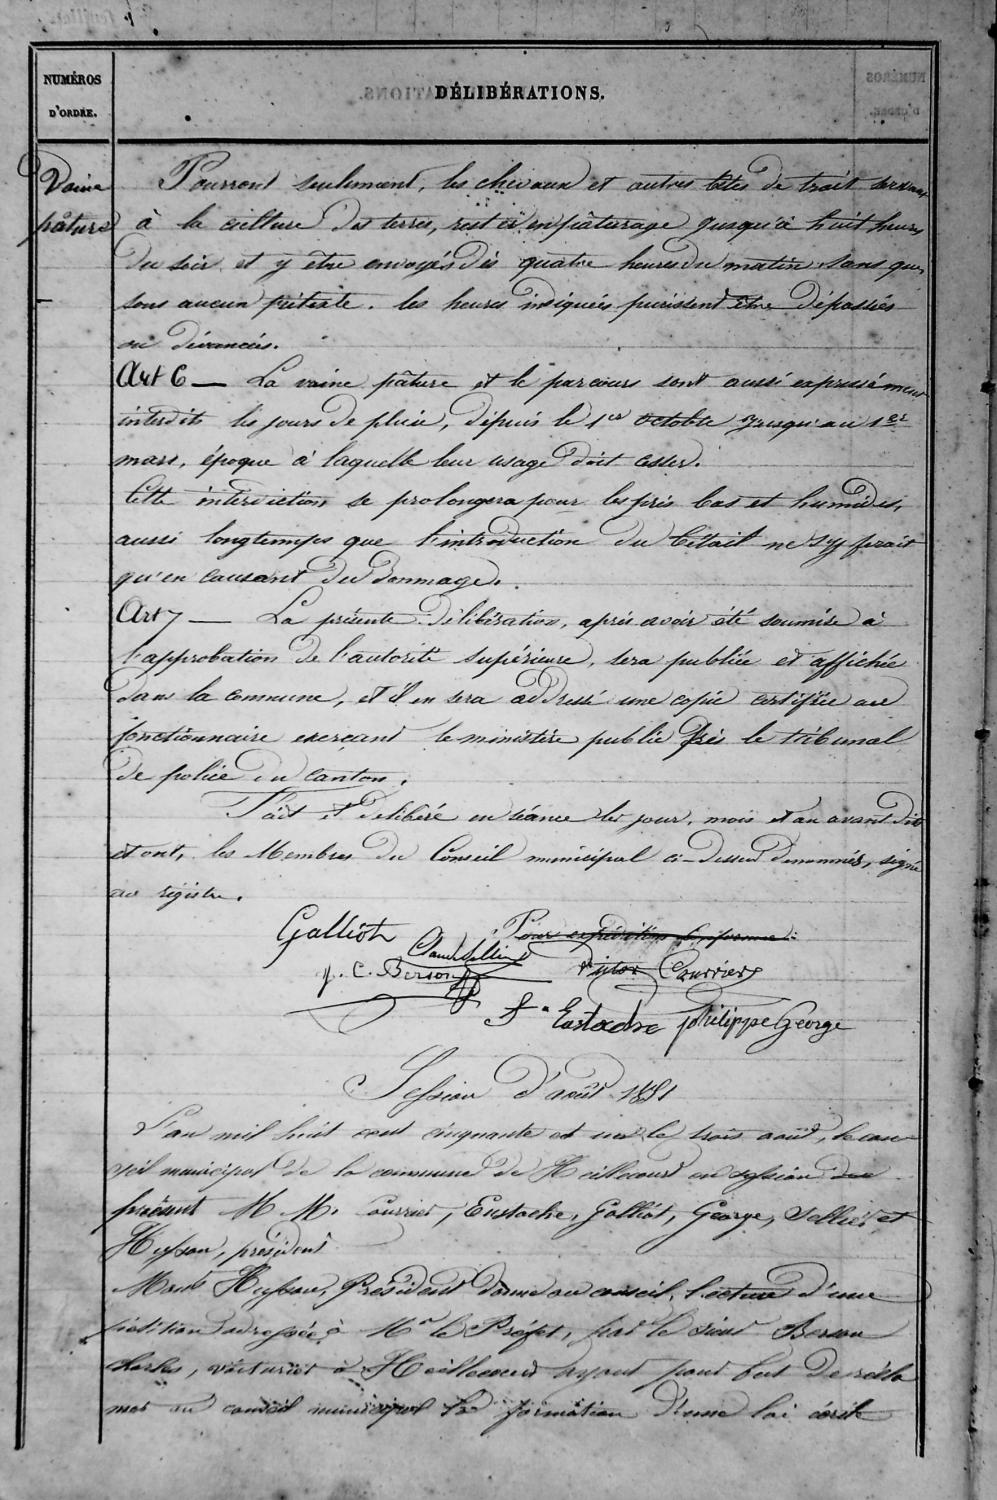 NUMÉROS
D'ORDRE.
DÉLIBÉRATIONS.
Vaine
pâture
Pourront seulement, les chevaux et autres bêtes de trait servant
à la culture des terres, rester en pâturage jusqu'à huit heures
du soir et y être envoyés dès quatre heures du matin sans que,
sous aucun prétexte, les heures indiquées puissent être dépassées
ou devancées.
Art 6 — La vaine pâture et le parcours sont aussi expressément
interdits les jours de pluie, depuis le 1er octobre jusqu'au 1er
mars, époque à laquelle leur usage doit cesser.
Cette interdiction se prolongera pour les prés bas et humides,
aussi longtemps que l'introduction du bétail ne s'y ferait
qu'en causant du dommage.
Art 7 — La présente délibération, après avoir été soumise à
l'approbation de l'autorité supérieure, sera publiée et affichée
dans la commune, et il en sera adressé une copie certifiée au
fonctionnaire exerçant le ministère public près le tribunal
de police du canton.
Fait et délibéré en séance les jour, mois et an avant dit
et ont, les Membres du Conseil municipal ci-dessus dénommés, signé
au registre.
Galliot
Pour expédition conforme:
Claude Sellier
J. C. Berson
Victor Courrier
F. Eustache
Philippe George
Session d'août 1851
L'an mil huit cent cinquante et un le trois août, le con
seil municipal de la commune de Heillecourt en session
présent M M. Courrier, Eustache, Galliot, George, Sellier et
Husson, président
Mont Husson, Président donne au conseil, lecture d'une
pétition adressée à Mr le Préfet, par le sieur Berson
charles, voiturier à Heillecourt ayant pour but de récla
mer au conseil municipal la formation d'une loi écrite